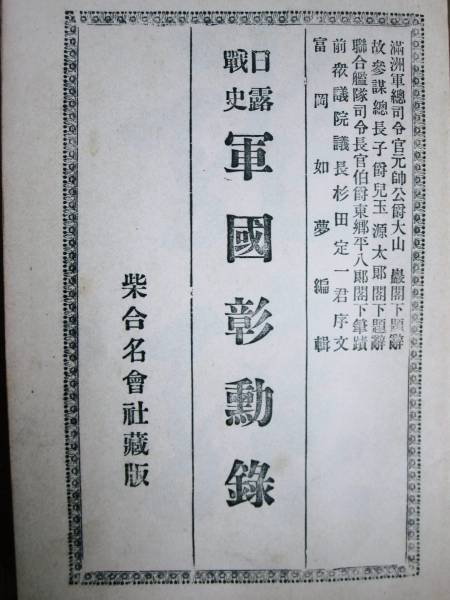 滿洲軍總司令官元帥公爵大山 巖閣下題辭
故參謀總長子爵兒玉源太郎閣下題辭
聯合艦隊司令長官伯爵東鄕平八郎閣下筆蹟
前衆議院議長杉田定一君序文
富岡如夢編輯
日露戰史 軍國彰勳錄
柴合名會社藏版